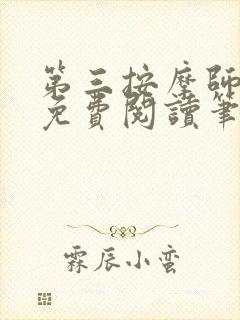 第三按摩師
免費閱讀筆
霖辰小蛮